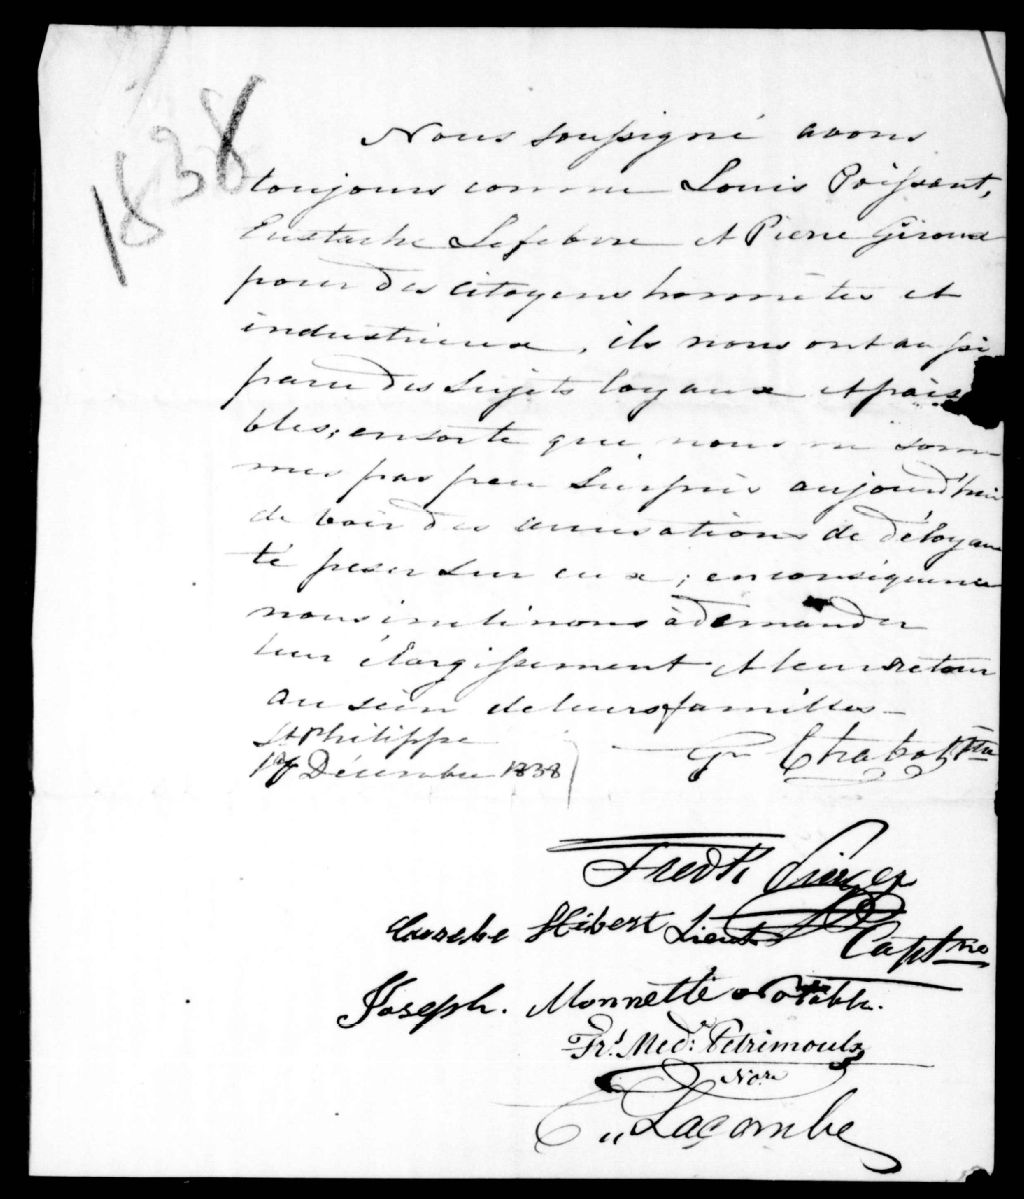 1838
Nous soussigné avons
toujours connu Louis Poissant,
Eustache Lefebvre et Pierre Giroux
pour des citoyens honnêtes et
industrieux, ils nous ont aussi
paru des sujets loyaux et paisi
bles; ensorte que nous ne som
mes pas peu surpris aujourd'hui
de voir des accusations de déloyau
té peser sur eux; en conséquence
nous inclinons à demander
leur élargissement et leur retour
au sein de leurs familles_
St Philippe
17 Décembre 1838
Chabot Ptre
Fredk Singer
Capt
Eusebe Hibert Lieut
Joseph. Monnette Notable.
Frs. Med. Petrimoulx
Nore
Lacombe